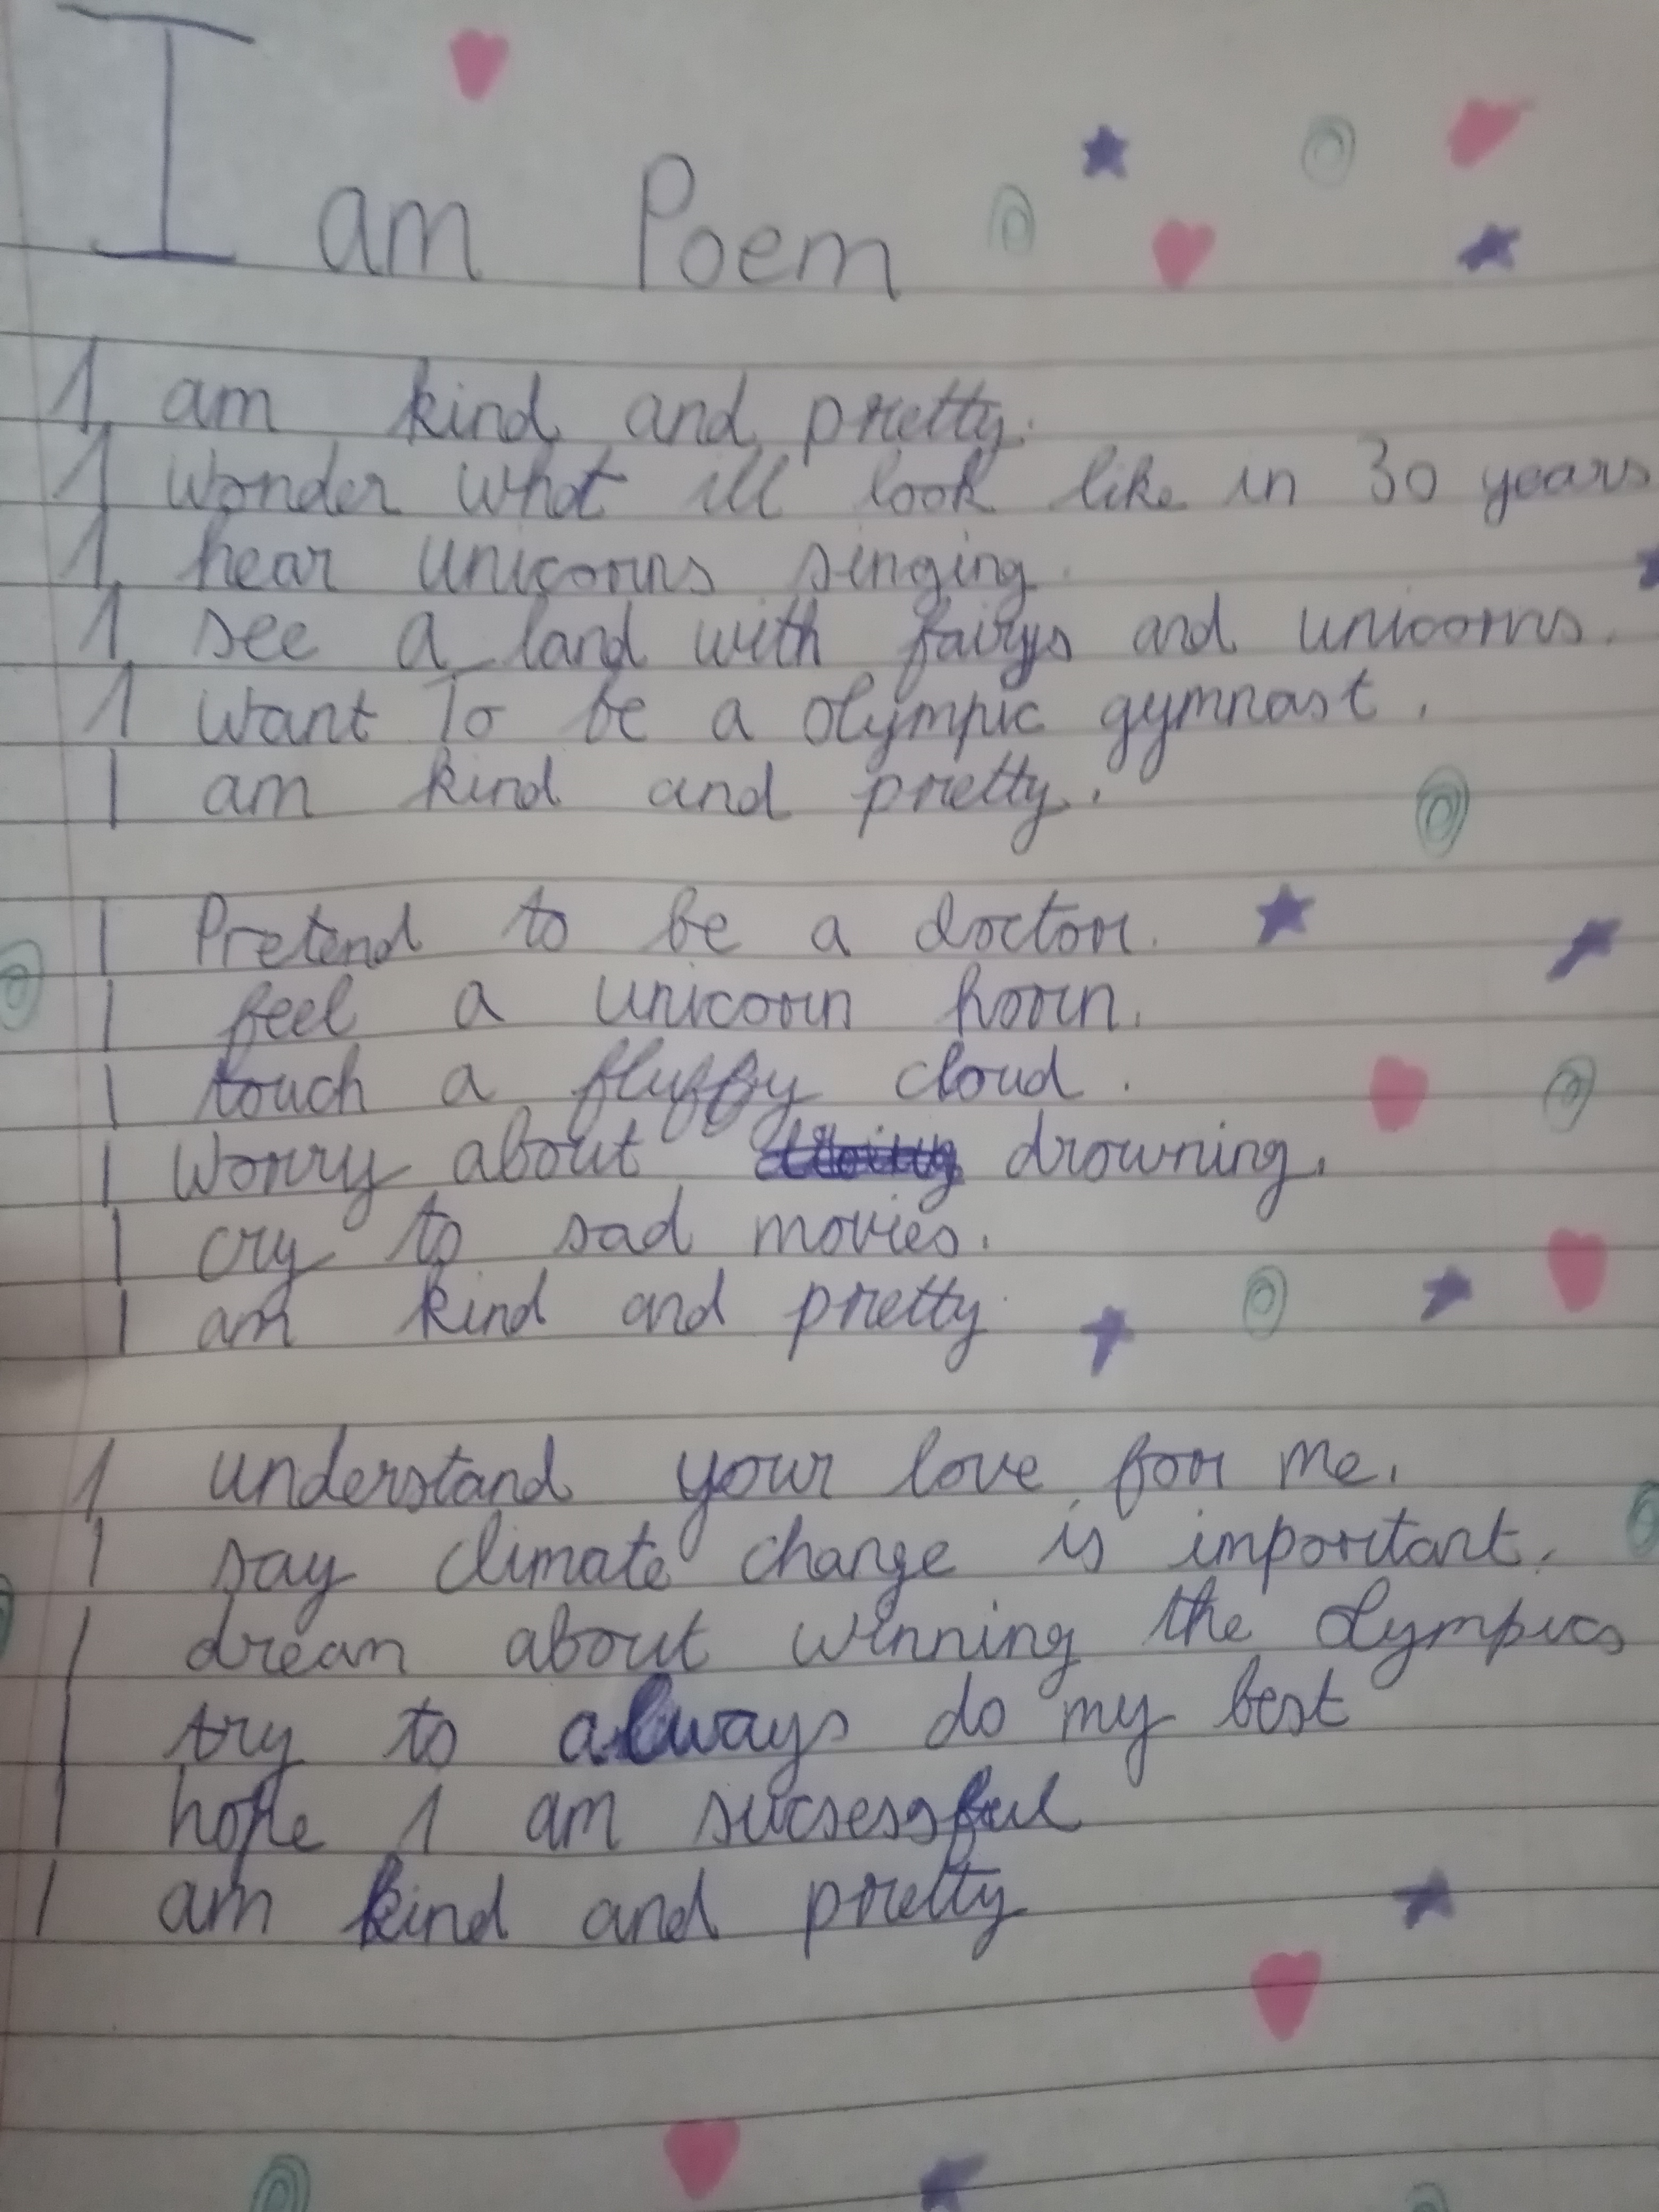 I am Poem
I am kind and pretty.
I wonder what ill look like in 30 years
I hear unicorns singing.
I see a land with fairys and unicorns.
I want To be a Olympic gymnast.
I am kind and pretty.
I Pretend to be a doctor.
I feel a unicorn horn.
I touch a fluffy cloud.
I worry about drowning.
I cry to sad movies.
I am kind and pretty
I understand your love for me.
I say climate change is important.
I drean about winning the Olympics
I try to always do my best
I hope I am sucsessful
I am kind and pretty